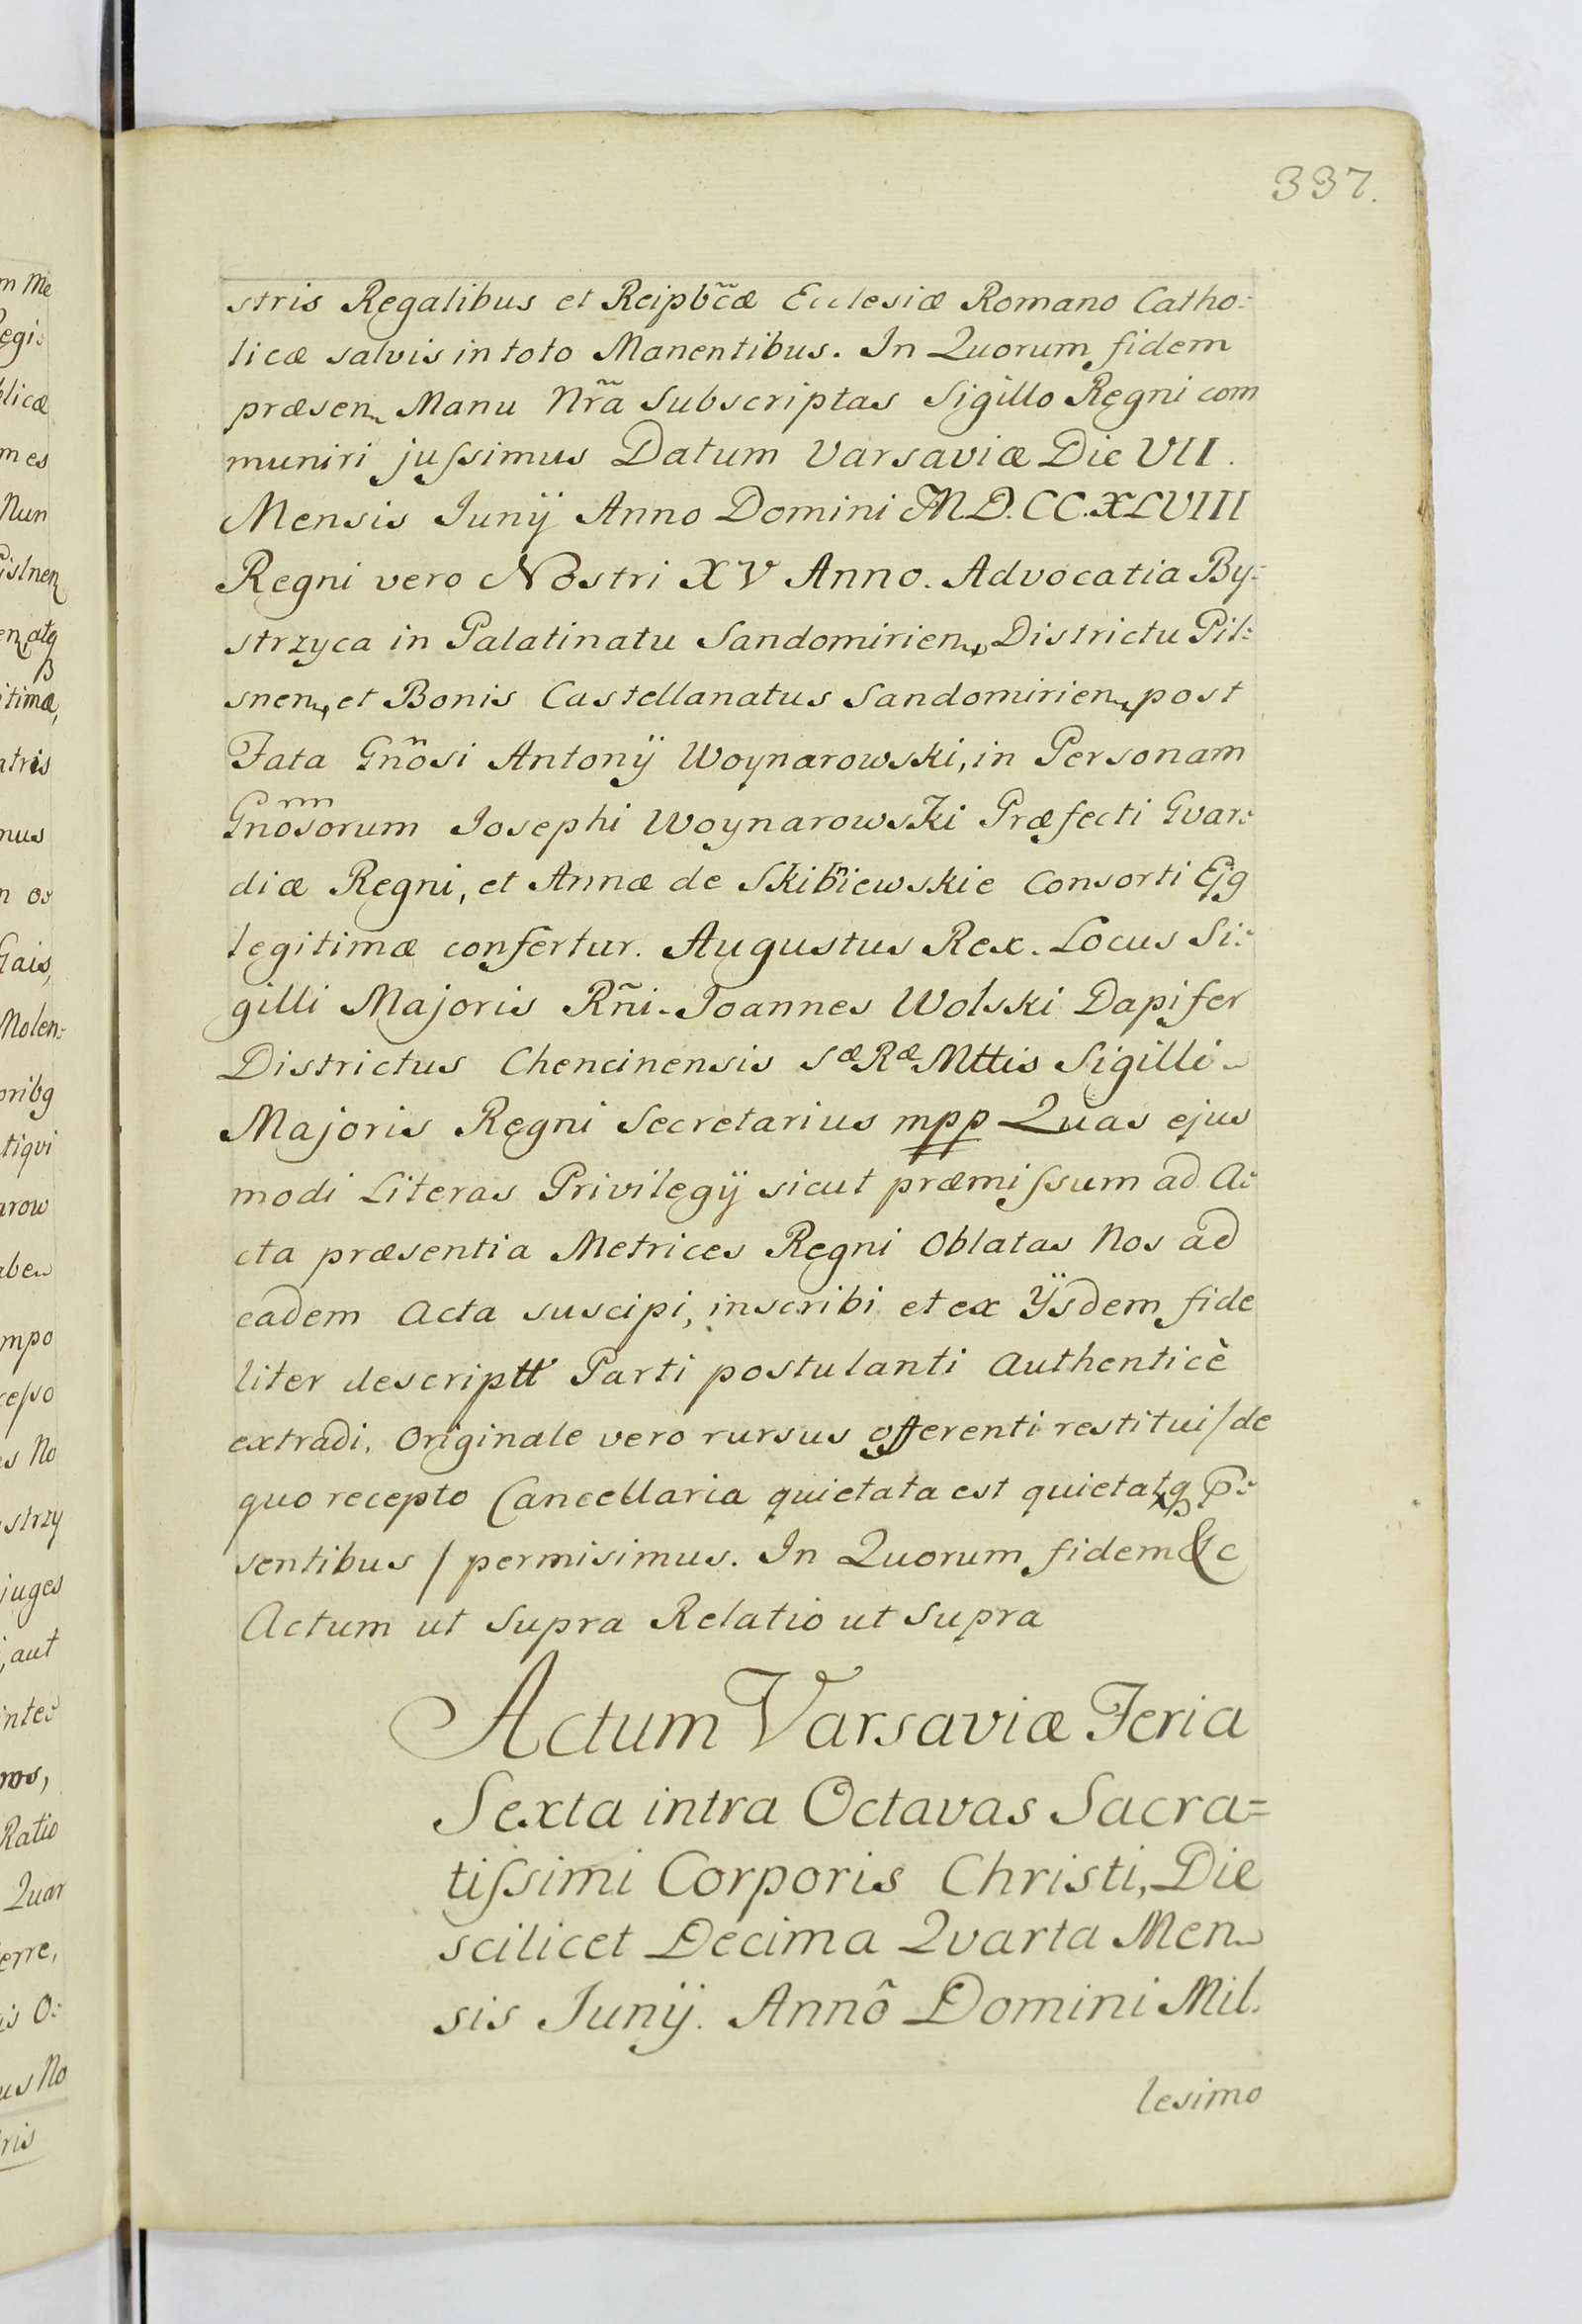 337.
stris Regalibus et Reipbc̃æ Ecclesiæ Romano Catho=
licæ salvis in toto Manentibus. In Quorum fidem
præsen Manu Nrã Subscriptas Sigillo Regni com
muniri juſsimus Datum Varsaviæ Die VII.
Mensis Junÿ Anno Domini M.D.CC.XLVIII
Regni vero Nostri XV Anno. Advocatia By=
strzyca in Palatinatu Sandomirien, Districtu Pil=
snen, et Bonis Castellanatus Sandomirien, post
Fata Gnõsi Antonÿ Woynarowski, in Personam
Gnõsorum Josephi Woynarowski Præfecti Gvar=
diæ Regni, et Annæ de Skibniewskie Consorti Ejq
legitimæ confertur. Augustus Rex. Locus Si=
gilli Majoris Rñi. Joannes Wolski Dapifer
Districtus Chencinensis Sæ Ræ Mttis Sigilli
Majoris Regni Secretarius mpp Quas ejus
modi Literas Privilegÿ sicut præmiſsum ad A=
cta præsentia Metrices Regni Oblatas Nos ad
eadem Acta suscipi, inscribi et ex Ÿsdem fide
liter descriptt Parti postulanti Authenticè
extradi, Originale vero rursus offerenti restitui / de
quo recepto Cancellaria quietata est quietatq p=
sentibus / permisimus. In Quorum fidem &c
Actum ut Supra Relatio ut Supra
Actum Varsaviæ Feria
Sexta intra Octavas Sacra=
tiſsimi Corporis Christi, Die
scilicet Decima Qvarta Men
sis Junÿ. Annô Domini Mil.
lesimo
m Me
egi=
licæ
mes
Nun
itimæ,
atris
nus
n os
Gais,
Molen=
oribq
tiqvi
arow
abe
mpo
ceſso
s No
strzy
juges
, aut
inte=
Ratio
Quar
erre,
is O=
us No
ris